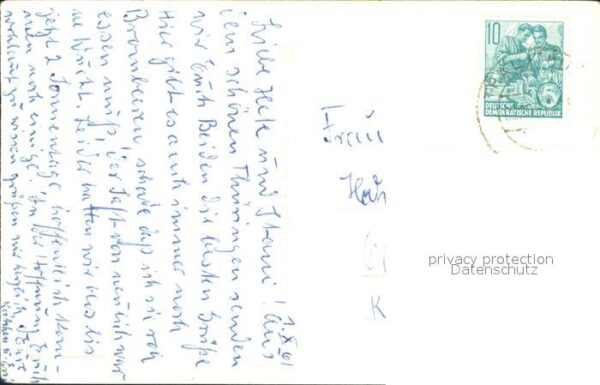 1.X.61
Liebe Hete und Stami! Aus
dem schönen Thüringen senden
wir Euch Beiden die besten Grüße.
Hier gibt es auch immer noch
Brombeeren schade daß ich sie roh
essen muß, der Saft von neulich war
ne Wucht. Leider hatten wir bis
jetzt 2 Sonnentage hoffentlich kom-
men noch einige. In der Hoffnung Euch
wohlauf zu wissen grüßen wir
Frau
Ha
K
10
DEUTSCHE
DEMOKRATISCHE REPUBLIK
privacy protection
Datenschutz